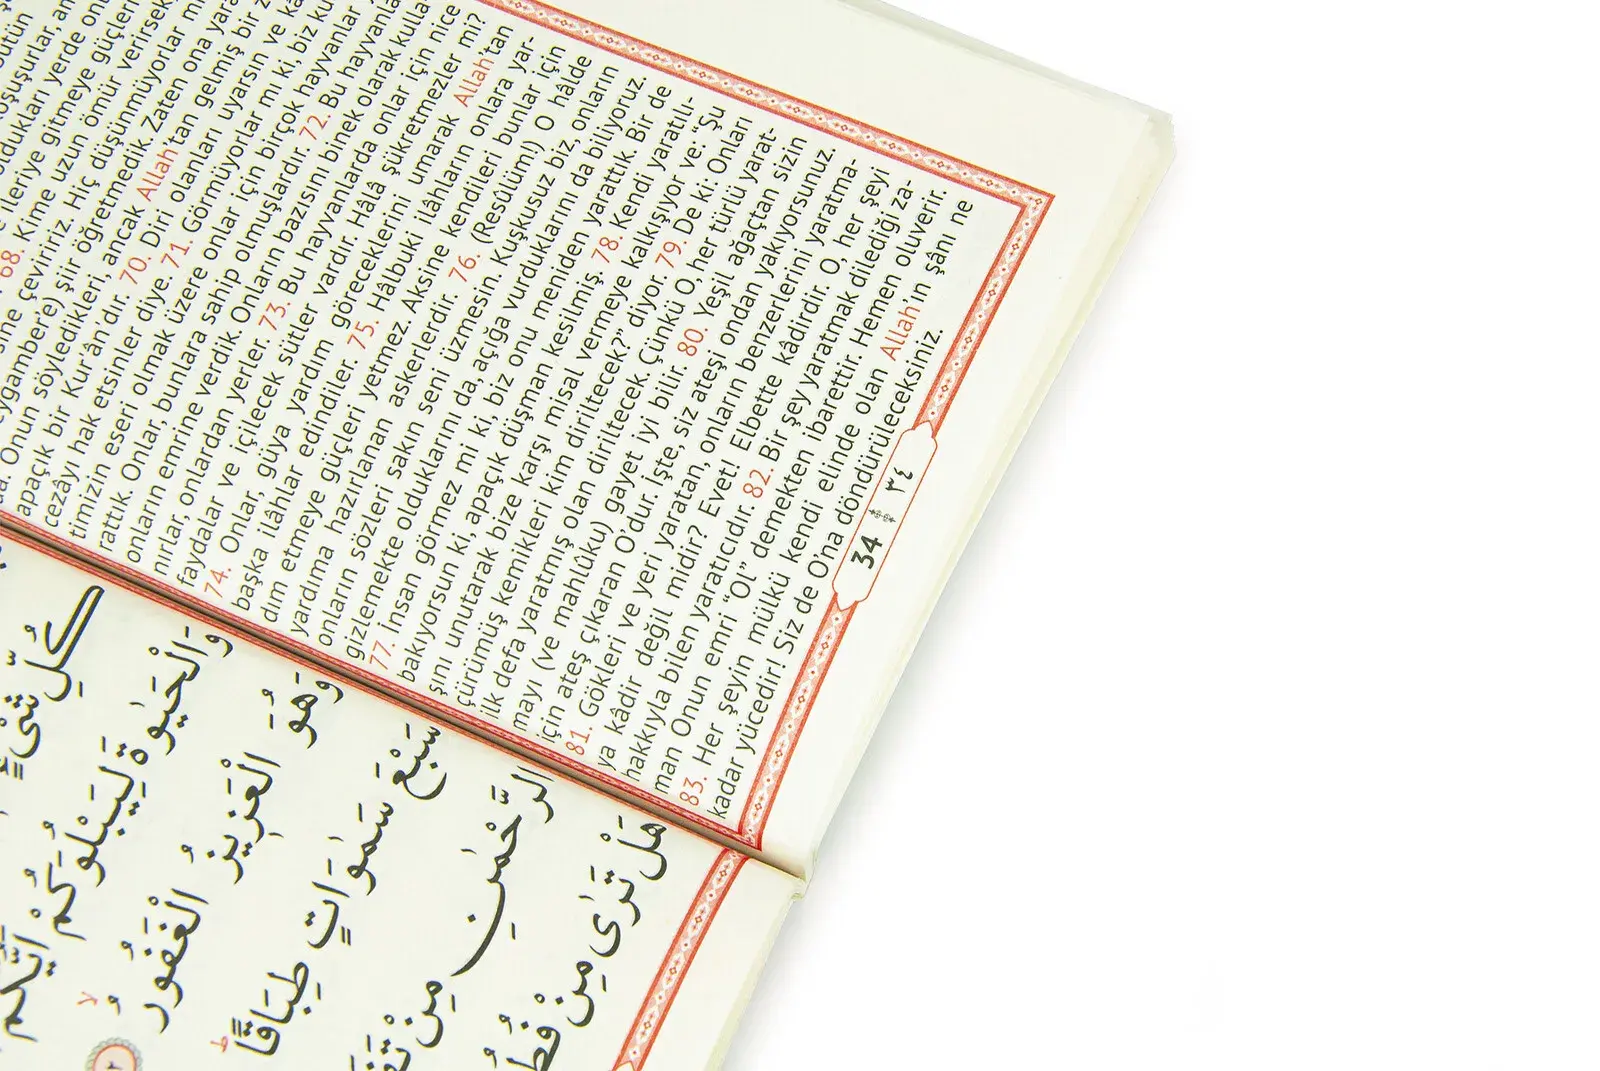 ileriye gitmeye güçleri
68. Kime uzun ömür verirsek
çeviririz. Hiç düşünmüyorlar
şiir öğretmedik. Zaten ona
Onun söyledikleri, ancak Allah'tan gelmiş bir
apaçık bir Kur'ân'dır. 70. Diri olanları uyarsın ve
cezâyı hak etsinler diye. 71. Görmüyorlar mı ki, biz
timizin eseri olmak üzere onlar için birçok hayvanlar
rattık. Onlar, bunlara sahip olmuşlardır. 72. Bu hayvanla
onların emrine verdik. Onların bazısını binek olarak kulla-
nırlar, onlardan yerler. 73. Bu hayvanlarda onlar için nice
faydalar ve içilecek sütler vardır. Hâlâ şükretmezler mi?
74. Onlar, güya yardım göreceklerini umarak Allah'tan
başka ilâhlar edindiler. 75. Hâlbuki ilâhların onlara yar-
dım etmeye güçleri yetmez. Aksine kendileri bunlar için
yardıma hazırlanan askerlerdir. 76. (Resûlüm!) O hâlde
onların sözleri sakın seni üzmesin. Kuşkusuz biz, onların
gizlemekte olduklarını da, açığa vurduklarını da biliyoruz.
77. İnsan görmez mi ki, biz onu meniden yarattık. Bir de
bakıyorsun ki, apaçık düşman kesilmiş. 78. Kendi yaratılı-
şını unutarak bize karşı misal vermeye kalkışıyor ve: "Şu
çürümüş kemikleri kim diriltecek?" diyor. 79. De ki: Onları
ilk defa yaratmış olan diriltecek. Çünkü O, her türlü yarat-
mayı (ve mahlûku) gayet iyi bilir. 80. Yeşil ağaçtan sizin
için ateş çıkaran O'dur. İşte, siz ateşi ondan yakıyorsunuz.
81. Gökleri ve yeri yaratan, onların benzerlerini yaratma-
ya kâdir değil midir? Evet! Elbette kâdirdir. O, her şeyi
hakkıyla bilen yaratıcıdır. 82. Bir şey yaratmak dilediği za-
man Onun emri "Ol" demekten ibarettir. Hemen oluverir.
83. Her şeyin mülkü kendi elinde olan Allah'ın şânı ne
kadar yücedir! Siz de O'na döndürüleceksiniz.
34 ٣٤
كُلِّ شَيْءٍ
وَالْحَيٰوةَ لِيَبْلُوَكُمْ اَيُّكُمْ
وَهُوَ الْعَزِيزُ الْغَفُورُ ۙ ٢
سَبْعَ سَمٰوَاتٍ طِبَاقًا ۜ
الرَّحْمٰنِ مِنْ
هَلْ تَرٰى مِنْ